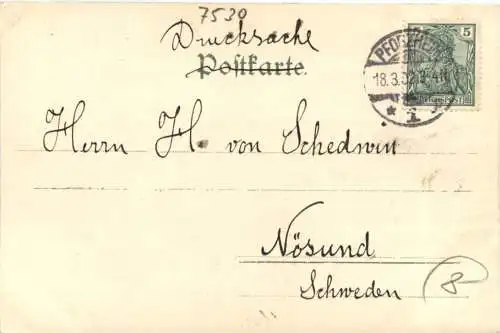 7530
Drucksache
Postkarte.
5
18.3.02.
REICHSPOST
* 1
Herrn H. von Schedwin
Nösund
Schweden
8